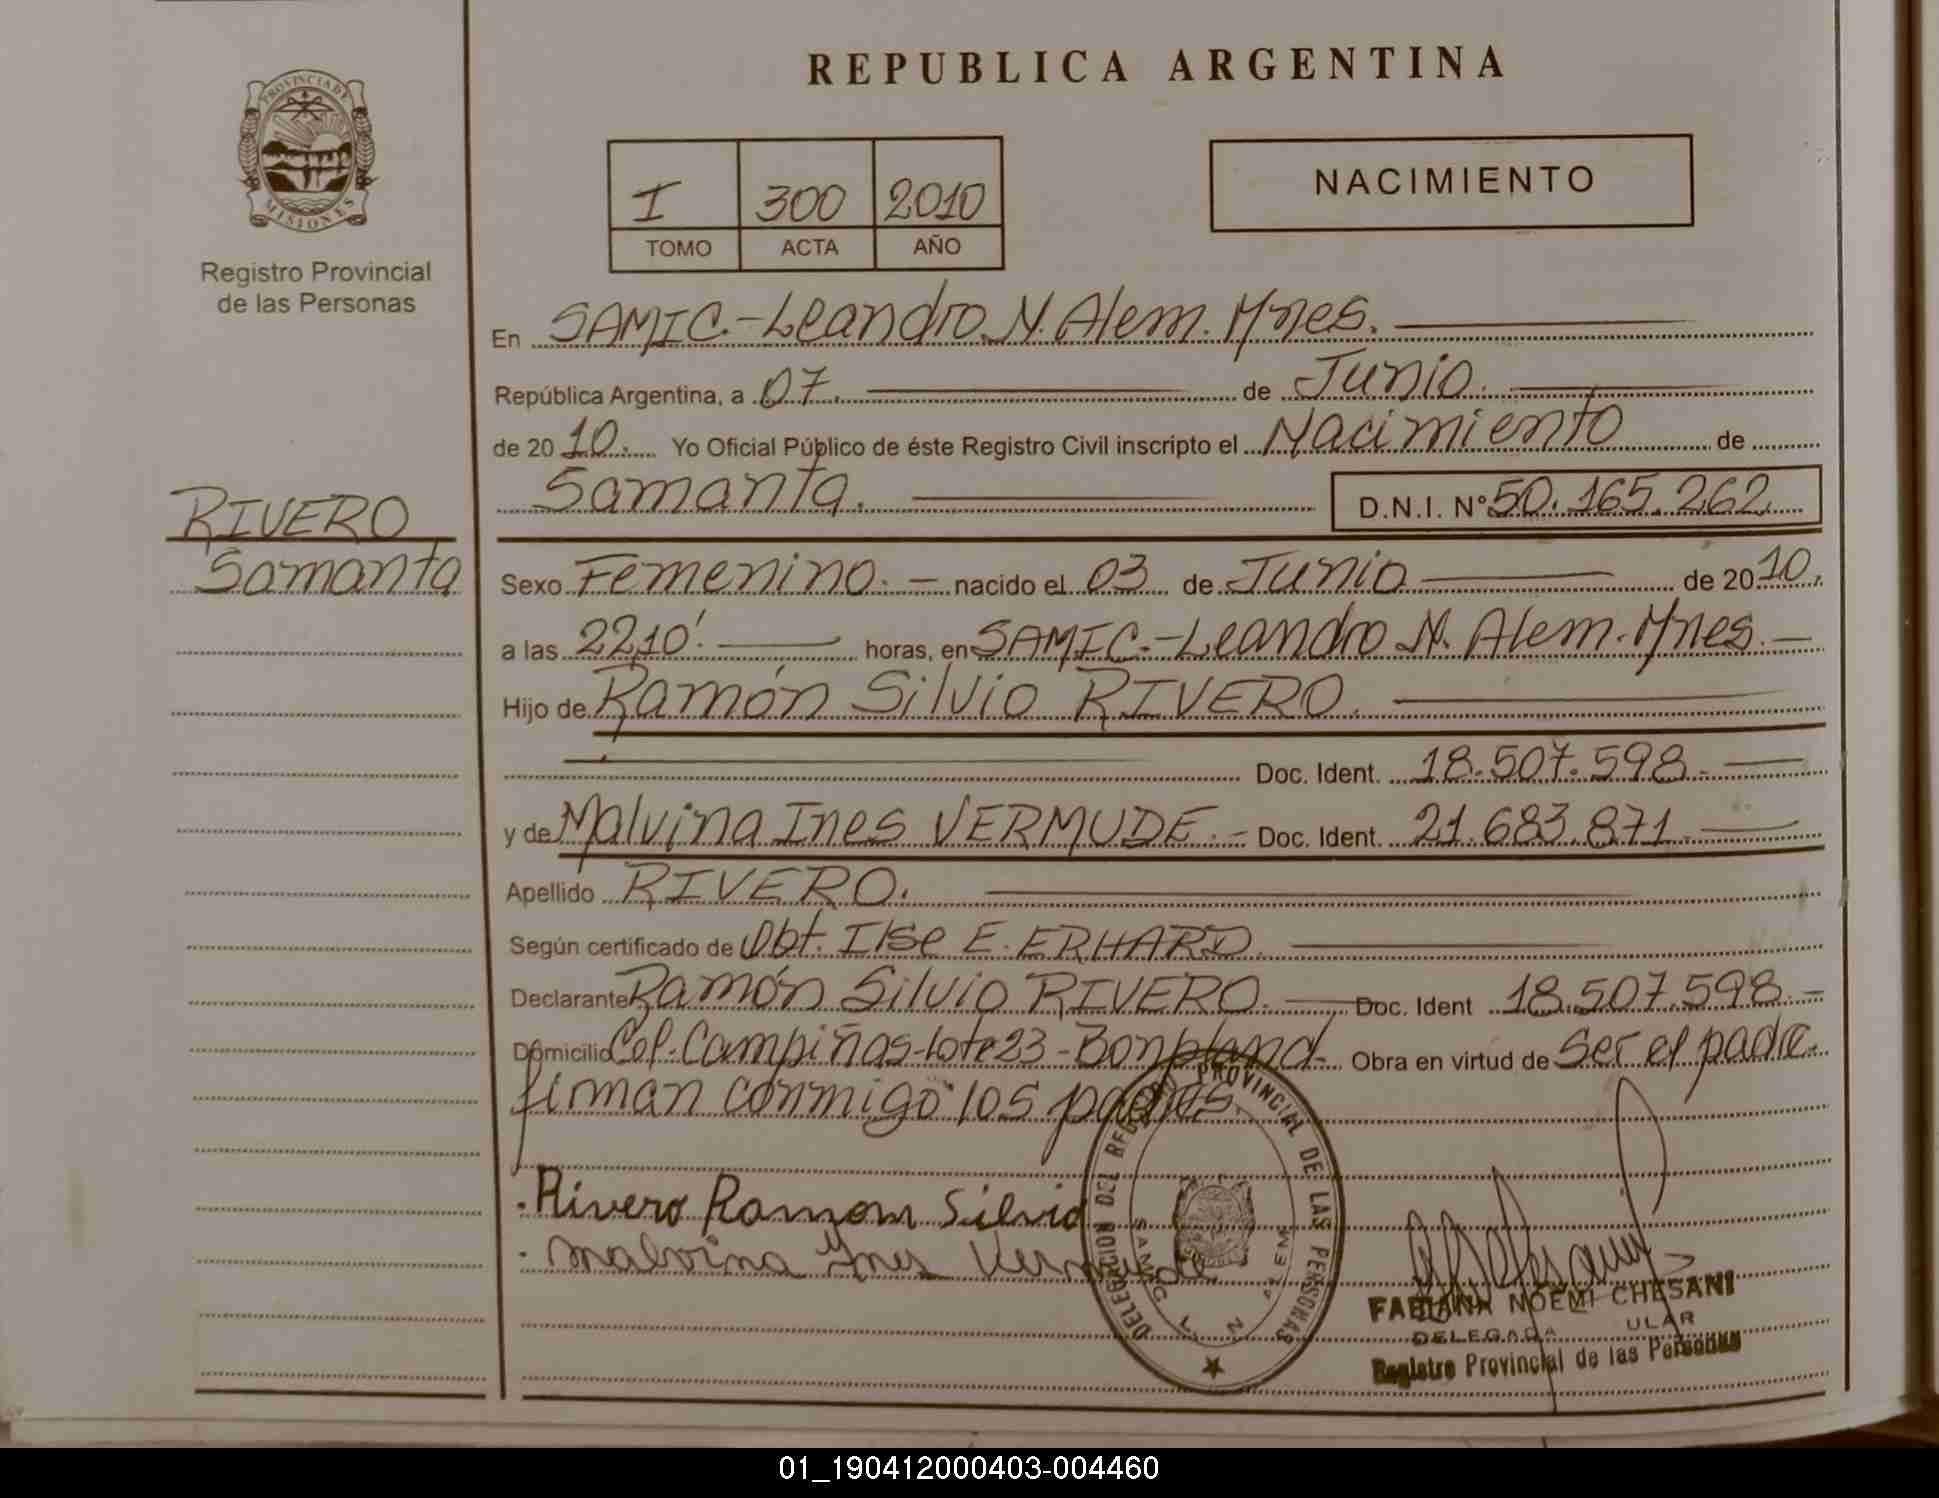 REPUBLICA ARGENTINA
PROVINCIA DE
MISIONES
Registro Provincial
de las Personas
I 300 2010
TOMO ACTA AÑO
NACIMIENTO
En SAMIC.-Leandro N. Alem. Mnes.
República Argentina, a 07. de Junio.
de 2010. Yo Oficial Público de éste Registro Civil inscripto el Nacimiento de
Samanta. D.N.I. Nº 50.165.262
RIVERO
Samanta
Sexo Femenino. nacido el 03 de Junio de 2010.
a las 22,10'. horas, en SAMIC.-Leandro N. Alem. Mnes.
Hijo de Ramón Silvio RIVERO.
Doc. Ident. 18.507.598.
y de Malvina Ines VERMUDE. Doc. Ident. 21.683.871.
Apellido RIVERO.
Según certificado de Obt. Ilse E. ERHARD.
Declarante Ramón Silvio RIVERO. Doc. Ident 18.507.598.
Domicilio Col. Campiñas-Lote 23-Bonpland. Obra en virtud de Ser el padre.
firman conmigo los padres.
Rivero Ramom Silvio
Malvina Ynes Vermude
DELEGACION DEL REGISTRO PROVINCIAL DE LAS PERSONAS
SAMIC L. N. ALEM
FABIANA NOEMI CHESANI
DELEGADA ULAR
Registro Provincial de las Personas
01_190412000403-004460